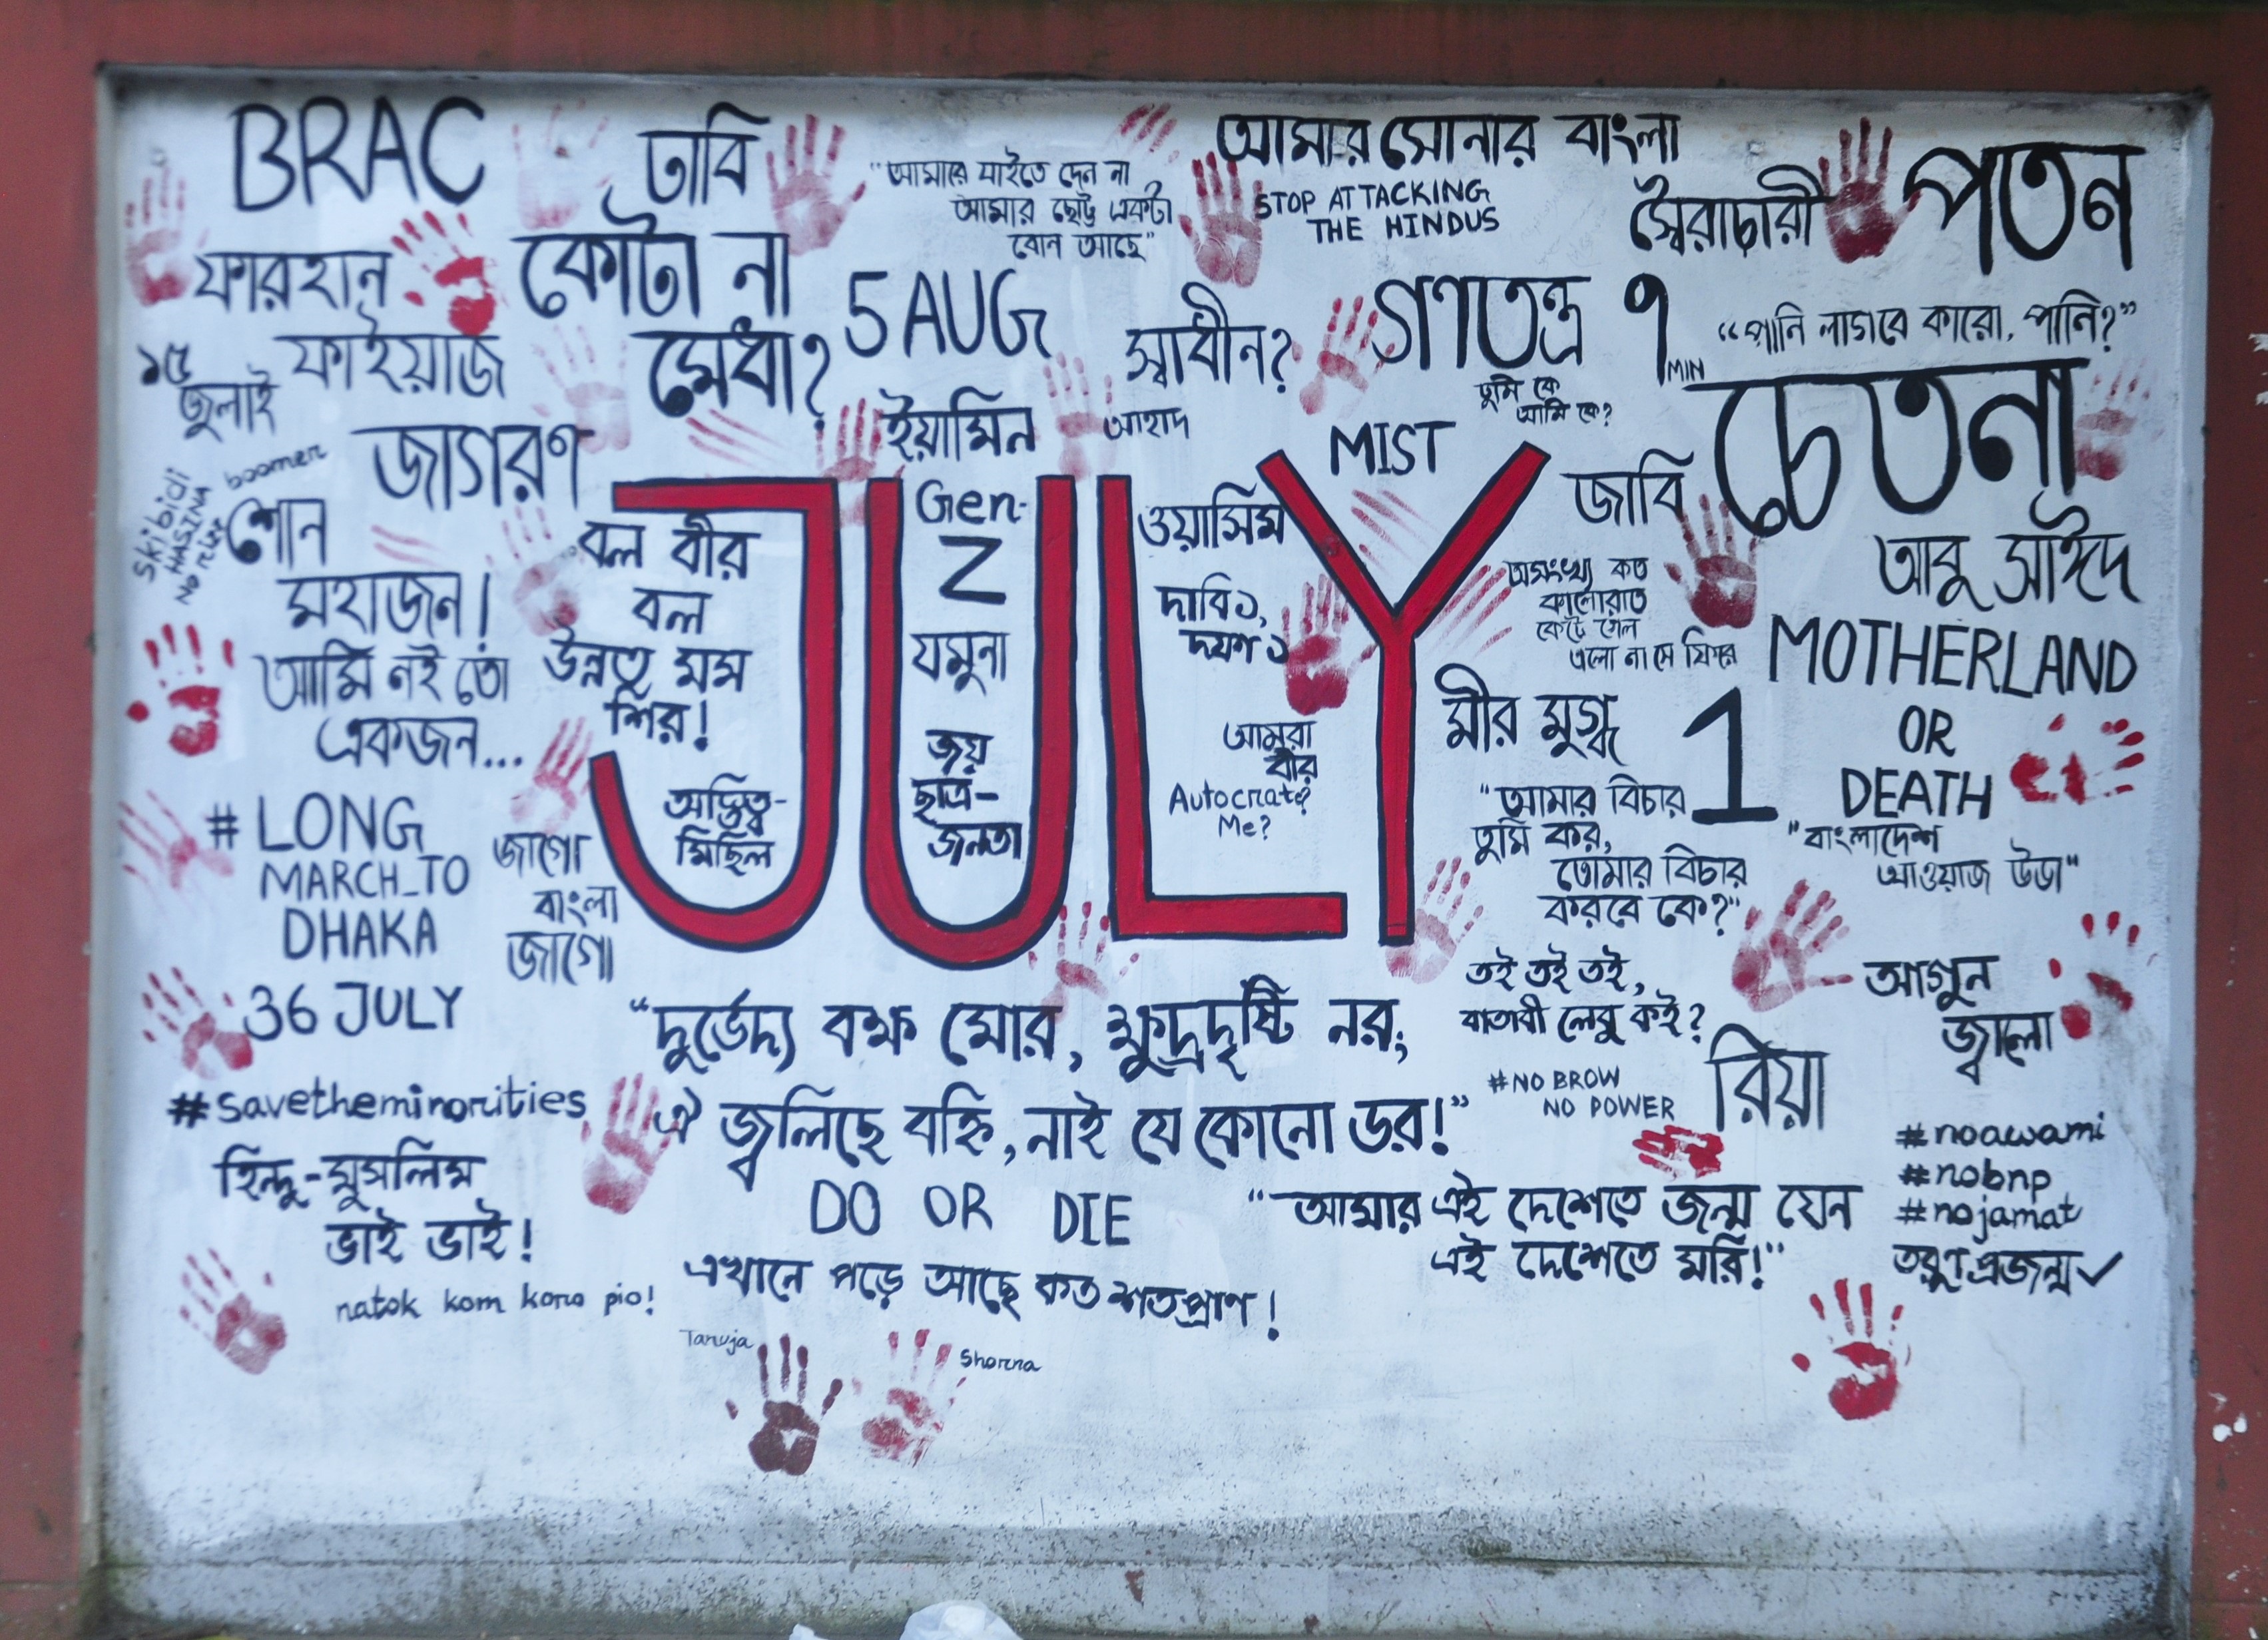 BRAC
ঢাবি
"আমারে যাইতে দেন না
আমার ছোট্ট একটা
বোন আছে"
আমার সোনার বাংলা
STOP ATTACKING
THE HINDUS
স্বৈরাচারী
পতন
ফারহান
ফাইয়াজ
কোটা না
মেধা?
5 AUG
স্বাধীন?
গণতন্ত্র
৭
MIN
"পানি লাগবে কারো, পানি?"
তুমি কে
আমি কে?
চেতনা
১৫
জুলাই
জাগরণ
ইয়ামিন
আহাদ
MIST
জাবি
boomer
skibidi
HASINA
NO rizz
শোন
মহাজন!
আমি নই তো
একজন...
বল বীর
বল
উন্নত মম
শির!
JULY
Gen-
Z
যমুনা
জয়
ছাত্র-
জনতা
ওয়াসিম
দাবি ১,
দফা ১
আমরা
বীর
Autocrate?
Me?
অস্তিত্ব-
মিছিল
অসংখ্য কত
কালোরাত
কেটে গেল
এলো না সে ফিরে
আবু সাঈদ
MOTHERLAND
OR
DEATH
মীর মুগ্ধ
1
"আমার বিচার
তুমি কর,
তোমার বিচার
করবে কে?"
"বাংলাদেশ
আওয়াজ উডা"
# LONG
MARCH_TO
DHAKA
জাগো
বাংলা
জাগো
36 JULY
"দুর্ভেদ্য বক্ষ মোর, ক্ষুদ্রদৃষ্টি নর;
ঐ জ্বলিছে বহ্নি, নাই যে কোনো ডর!"
তই তই তই,
বাতাবী লেবু কই?
আগুন
জ্বালো
#NO BROW
NO POWER
রিয়া
#savetheminorities
হিন্দু-মুসলিম
ভাই ভাই!
natok kom koro pio!
DO OR DIE
"আমার এই দেশেতে জন্ম যেন
এই দেশেতে মরি!"
এখানে পড়ে আছে কত শতপ্রাণ!
#noawami
#nobnp
#nojamat
তরুণপ্রজন্ম✓
Tanuja
Shorna